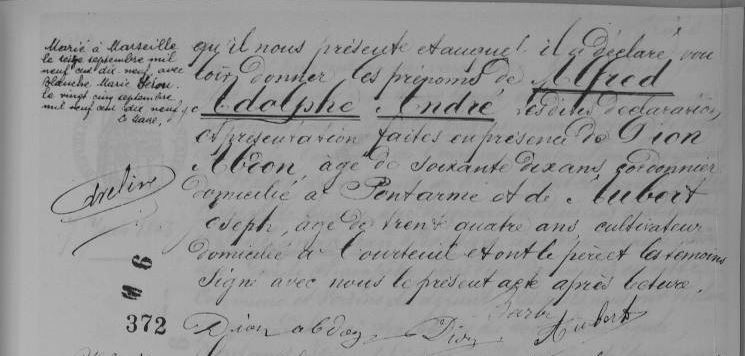 Marié à Marseille
le seize septembre mil
neuf cent dix neuf avec
Blanche Marie
le vingt cinq septembre
mil neuf cent dix neuf
qu'il nous présente et auquel il a déclaré vou
loir donner les prénoms de Alfred
Adolphe André les dites déclaration
et présentation faites en présence de Dion
Abdon, âgé de soixante dix ans, cordonnier
domicilié à Pontarmé et de Aubert
Joseph, âgé de trente quatre ans, cultivateur
domicilié à Courteuil et ont le père et les témoins
signé avec nous le présent acte après lecture.
Barbe
Dion abdon Dion Aubert
M 6
372